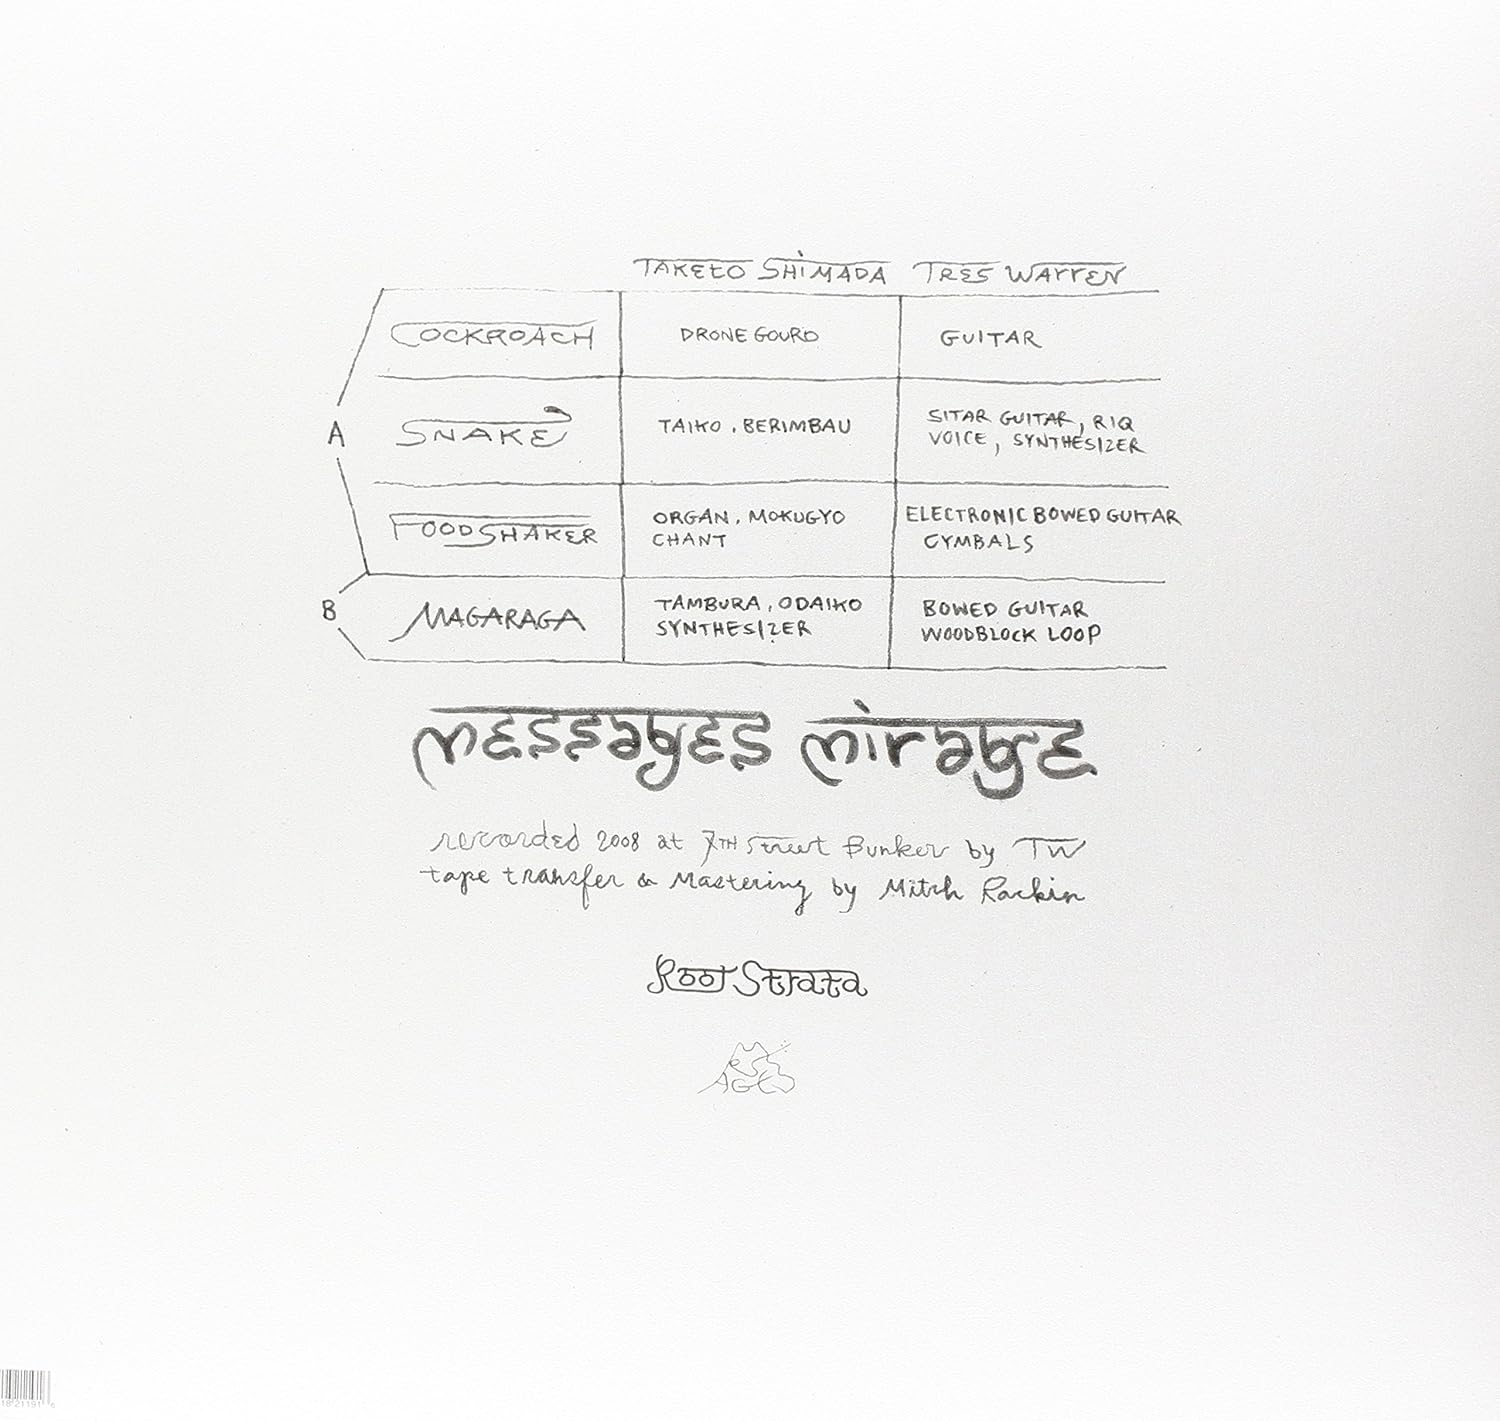 TAKETO SHIMADA TRES WARREN
COCKROACH DRONE GOURD GUITAR
A
SNAKE TAIKO, BERIMBAU SITAR GUITAR, RIQ
VOICE, SYNTHESIZER
FOODSHAKER ORGAN, MOKUGYO ELECTRONIC BOWED GUITAR
CHANT CYMBALS
B
MAGARAGA TAMBURA, ODAIKO BOWED GUITAR
SYNTHESIZER WOODBLOCK LOOP
messages mirage
recorded 2008 at 7TH Street Bunker by TW
tape transfer & Mastering by Mitch Rackin
Root Strata
MESSAGES